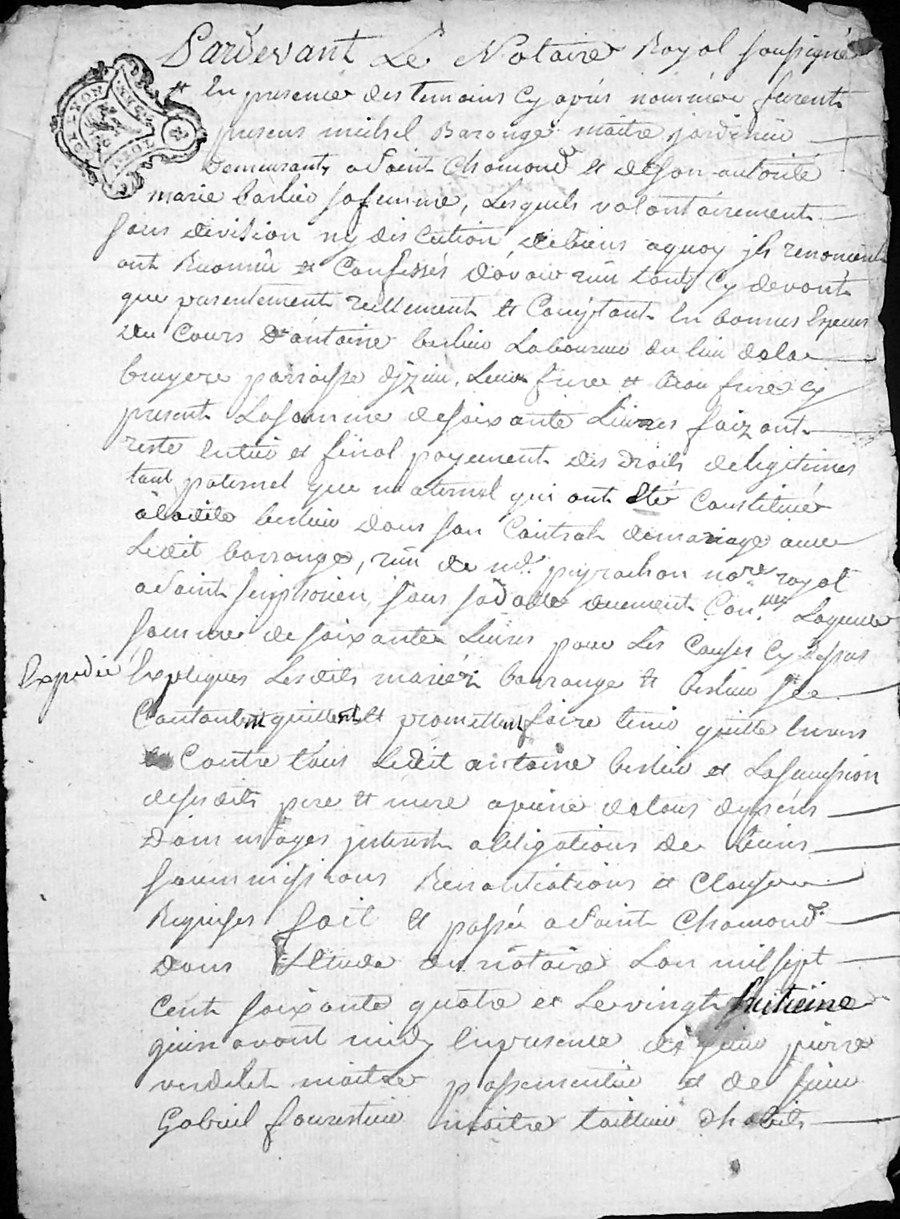 Pardevant Le Notaire Royal soussigné
En presence des temoins cy après nommés furent
presens michel Barange maitre jardinier
Demeurants a Saint Chamond et de son autorité
marie berlier sa femme, Lesquels volontairement
sans division ny discution de biens a quoy jls renoncent
ont Reconnu et Confessés d'avoir reçu tant cy devant
que presentement reellement et Comptant En bonnes Especes
du Cours d'antoine berlier Laboureur du lieu de la
bruyere parroisse d'jzieu, Leur frere et beau frere cy
present La somme de soixante Livres faizant
reste entier et final payement des Droits de legitimes
tant paternel que maternel qui ont Eté Constitués
à ladite berlier dans son Contrat de mariage avec
Ledit barrange, reçu de md. peyrachon nore. royal
a Saint simphorien, sous sa datte duement Con.lée Laquelle
somme de soixante Livres pour Les Causes Cy Dessus
Expedié
Expliqués Lesdits mariéz barrange et berlier s'en
Contantent quittent et promettent faire tenir quitte envers
et Contre tous Ledit antoine berlier et La succession
de sesdits pere et mere a peine de tous depens
Dommages jnterest obligations de biens
soummissions Renontiations et Clauses
Requises fait et passée a Saint Chamond
Dans L'Etude du notaire L'an mil sept
Cent soixante quatre et Le vingt huitieme
juin avant midy En presence de sieur pierre
verdelet maitre passementier et de sieur
Gabriel maitre tailleur d'habits